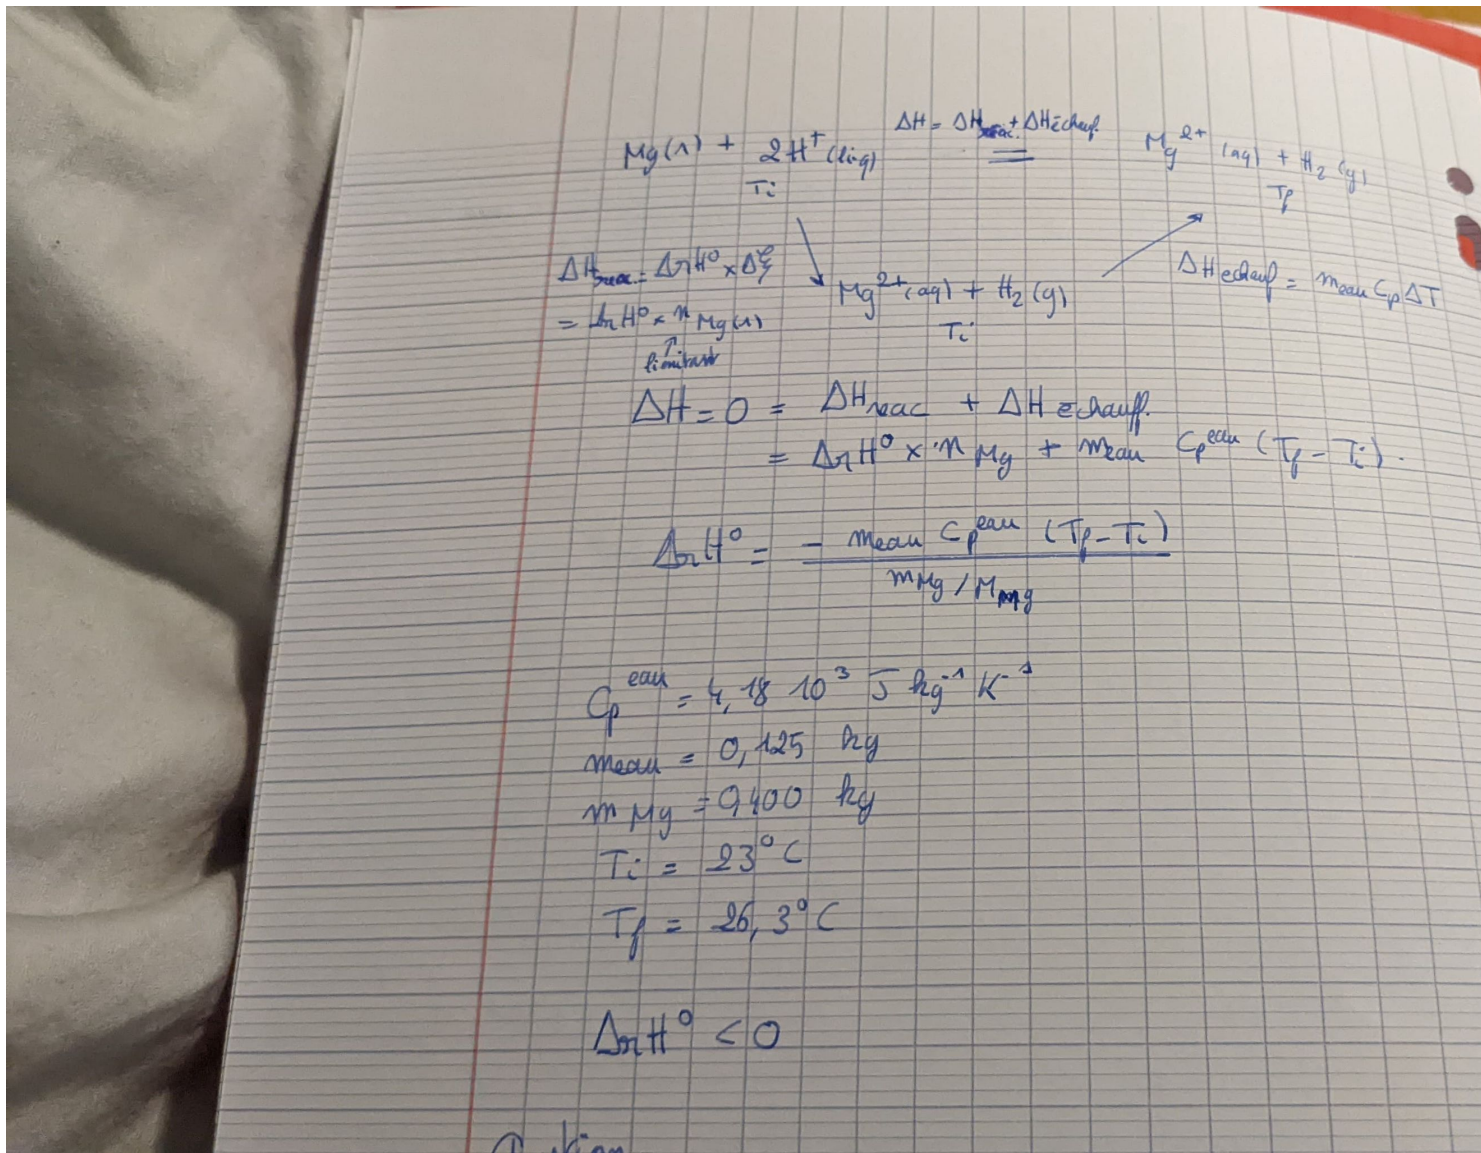 ΔH = ΔHréac. + ΔHéchauf.
Mg(s) + 2H⁺(liq) = Mg²⁺(aq) + H₂(g)
Ti Tf
ΔHréac. = ΔrH⁰ × Δξ
= ΔrH⁰ × n Mg(s)
↑
limitant
Mg²⁺(aq) + H₂(g)
Ti
ΔHéchauf = meau Cp ΔT
ΔH = 0 = ΔHréac + ΔHéchauff.
= ΔrH⁰ × nMg + meau Cp^eau (Tf - Ti).
ΔrH⁰ = - meau Cp^eau (Tf - Ti)
mMg / MMg
Cp^eau = 4,18 10³ J kg⁻¹ K⁻¹
meau = 0,125 kg
mMg = 0,100 kg
Ti = 23°C
Tf = 26,3°C
ΔrH⁰ < 0